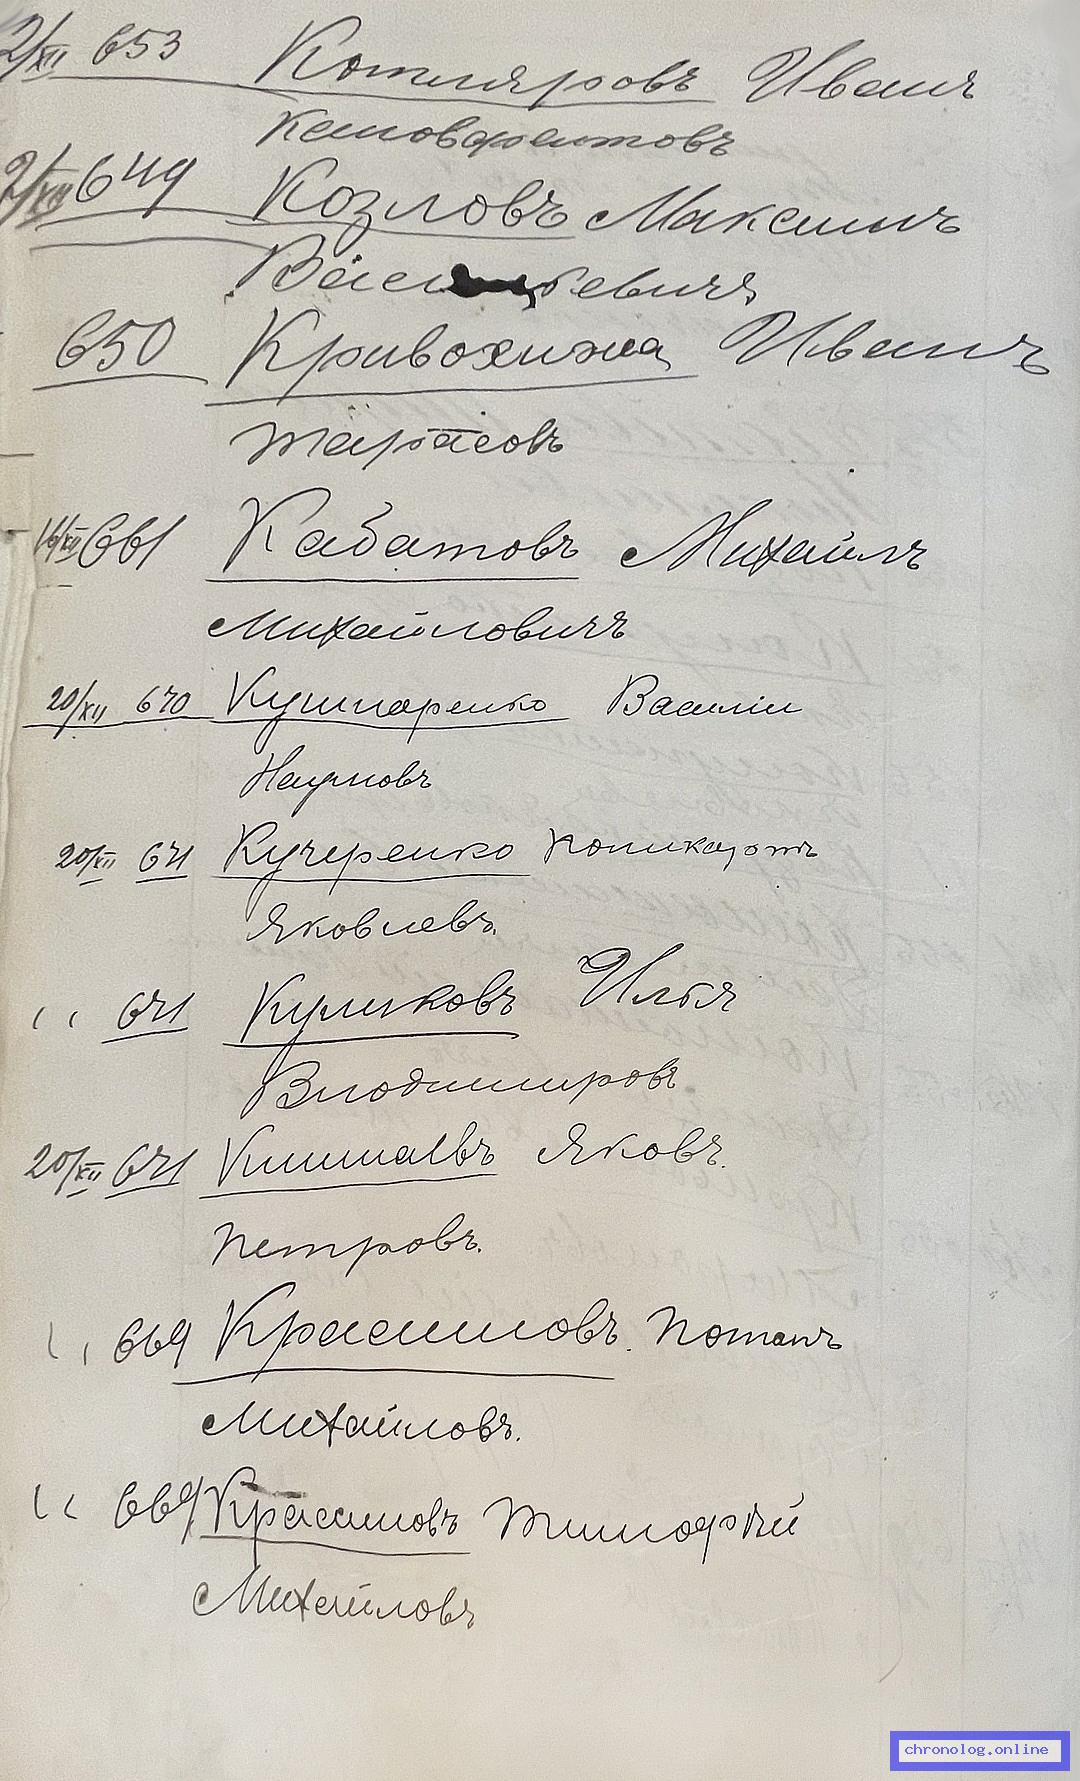 2/XII 653 Котляровъ Иванъ
Ксенофонтовъ
2/XII 649 Козловъ Максимъ
Васильевичъ
650 Кривохижа Иванъ
Тарасовъ
16/XII 661 Кабатовъ Михаилъ
Михайловичъ
20/XII 670 Кушнаренко Василiи
Наумовъ
20/XII 671 Кучеренко Поликарпъ
Яковлевъ.
" 671 Куликовъ Илья
Владимировъ
20/XII 671 Яковъ.
Петровъ.
" 669 Красниковъ. Потапъ
Михайловъ.
" 669 Тимофѣй
Михайловъ
chronolog.online